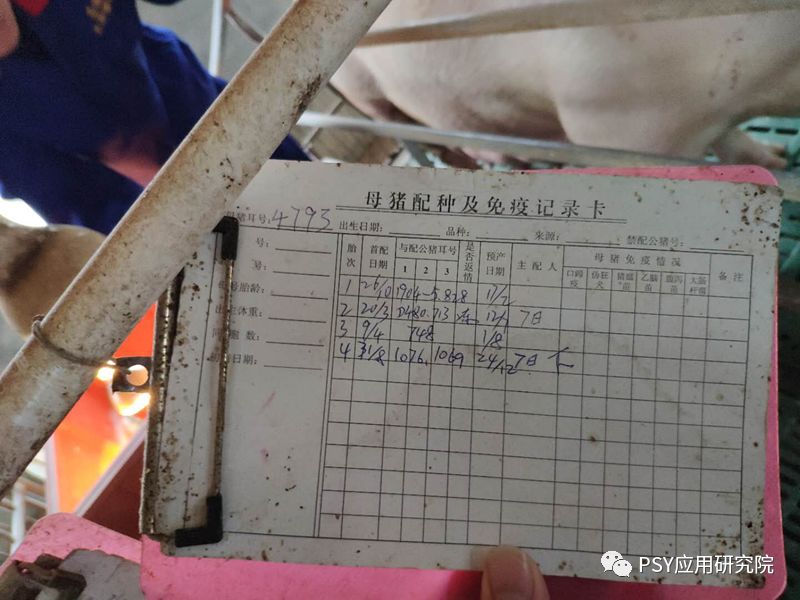 母猪配种及免疫记录卡
母猪耳号: 4793 出生日期: 品种: 来源: 禁配公猪号:
号:
号:
胎龄:
体重:
数:
日期:
胎次 首配日期 与配公猪耳号 1 2 3 是否返情 预产日期 主配人 母猪免疫情况 口蹄疫 伪狂犬 猪瘟苗 乙脑苗 大肠杆菌 备注
1 26/10 1904 5828 17/2
2 20/3 713 7日
3 9/4 748 1/8
4 31/8 1076. 1069 24/12 7日
PSY应用研究院